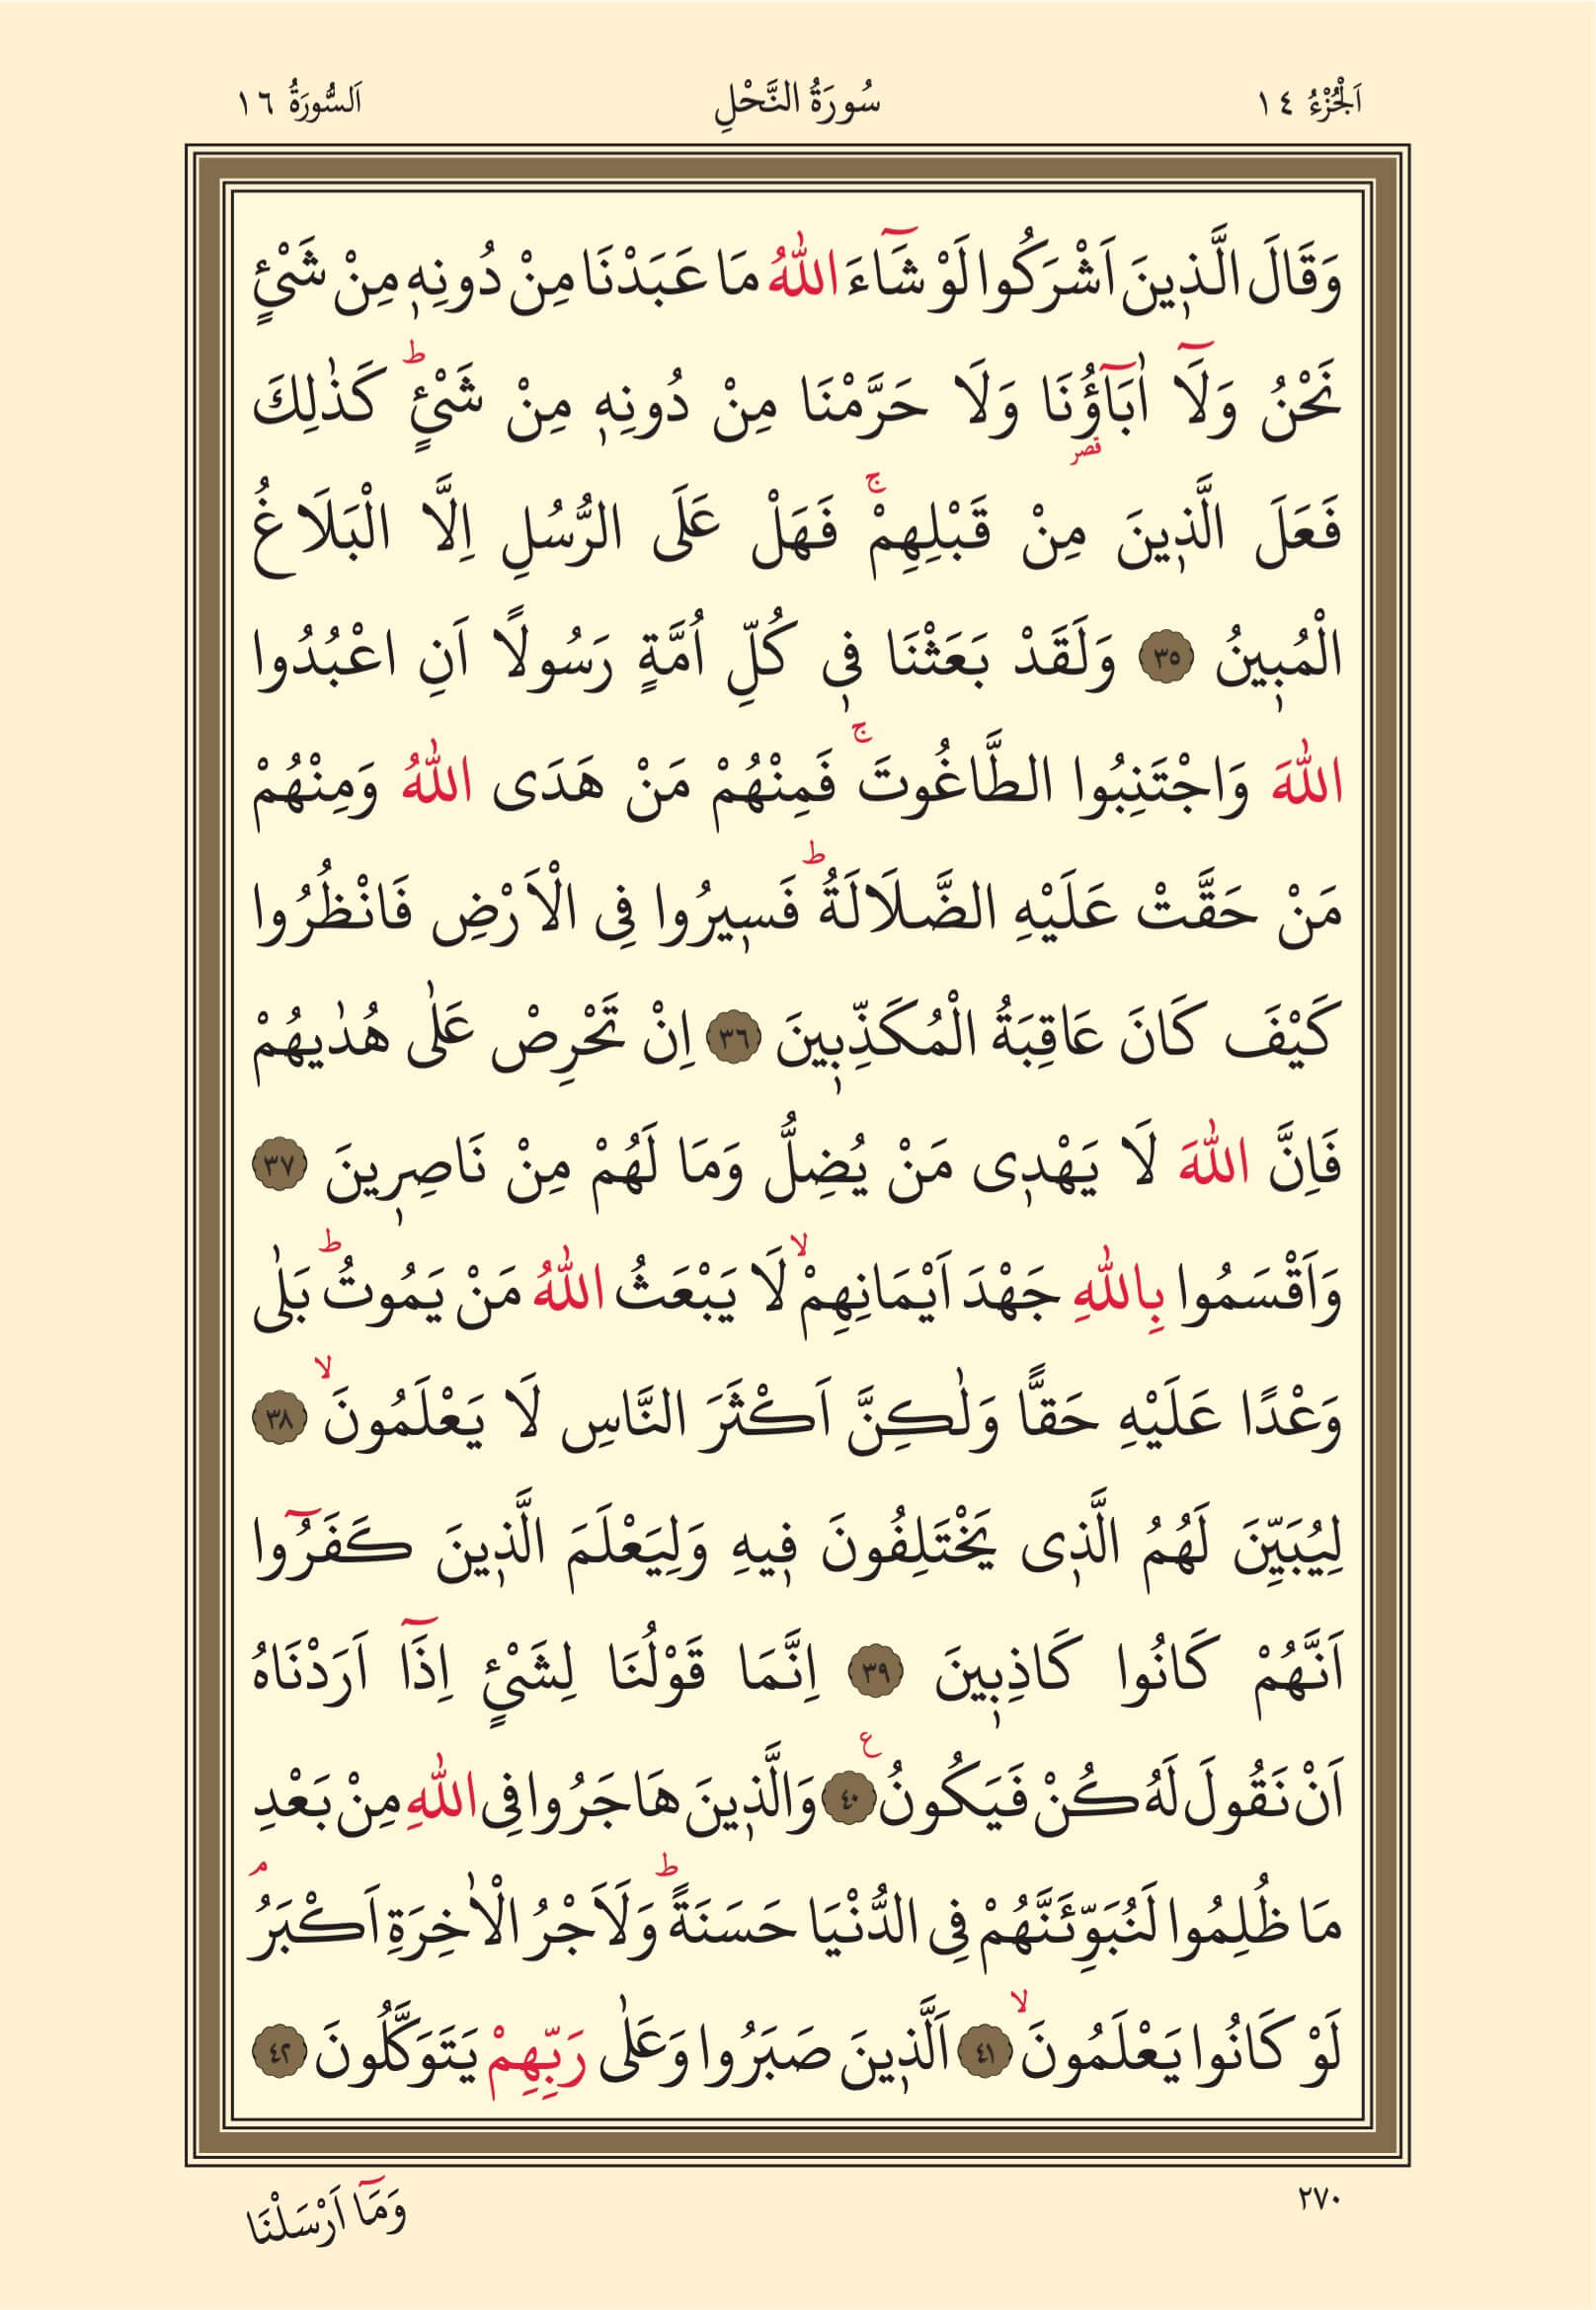 اَلْجُزْءُ ١٤ سُورَةُ النَّحْلِ اَلسُّورَةُ ١٦
وَقَالَ الَّذ۪ينَ اَشْرَكُوا لَوْ شَٓاءَ اللّٰهُ مَا عَبَدْنَا مِنْ دُونِه۪ مِنْ شَيْءٍ
نَحْنُ وَلَٓا اٰبَٓاؤُ۬نَا وَلَا حَرَّمْنَا مِنْ دُونِه۪ مِنْ شَيْءٍۜ كَذٰلِكَ
قصر
فَعَلَ الَّذ۪ينَ مِنْ قَبْلِهِمْۚ فَهَلْ عَلَى الرُّسُلِ اِلَّا الْبَلَاغُ
الْمُب۪ينُ ٣٥ وَلَقَدْ بَعَثْنَا ف۪ي كُلِّ اُمَّةٍ رَسُولًا اَنِ اعْبُدُوا
اللّٰهَ وَاجْتَنِبُوا الطَّاغُوتَۚ فَمِنْهُمْ مَنْ هَدَى اللّٰهُ وَمِنْهُمْ
مَنْ حَقَّتْ عَلَيْهِ الضَّلَالَةُۜ فَس۪يرُوا فِي الْاَرْضِ فَانْظُرُوا
كَيْفَ كَانَ عَاقِبَةُ الْمُكَذِّب۪ينَ ٣٦ اِنْ تَحْرِصْ عَلٰى هُدٰيهُمْ
فَاِنَّ اللّٰهَ لَا يَهْد۪ي مَنْ يُضِلُّ وَمَا لَهُمْ مِنْ نَاصِر۪ينَ ٣٧
وَاَقْسَمُوا بِاللّٰهِ جَهْدَ اَيْمَانِهِمْۙ لَا يَبْعَثُ اللّٰهُ مَنْ يَمُوتُۜ بَلٰى
وَعْدًا عَلَيْهِ حَقًّا وَلٰكِنَّ اَكْثَرَ النَّاسِ لَا يَعْلَمُونَۙ ٣٨
لِيُبَيِّنَ لَهُمُ الَّذ۪ي يَخْتَلِفُونَ ف۪يهِ وَلِيَعْلَمَ الَّذ۪ينَ كَفَرُٓوا
اَنَّهُمْ كَانُوا كَاذِب۪ينَ ٣٩ اِنَّمَا قَوْلُنَا لِشَيْءٍ اِذَٓا اَرَدْنَاهُ
اَنْ نَقُولَ لَهُ كُنْ فَيَكُونُ ع ٤٠ وَالَّذ۪ينَ هَاجَرُوا فِي اللّٰهِ مِنْ بَعْدِ
مَا ظُلِمُوا لَنُبَوِّئَنَّهُمْ فِي الدُّنْيَا حَسَنَةًۜ وَلَاَجْرُ الْاٰخِرَةِ اَكْبَرُۢ
لَوْ كَانُوا يَعْلَمُونَۙ ٤١ اَلَّذ۪ينَ صَبَرُوا وَعَلٰى رَبِّهِمْ يَتَوَكَّلُونَ ٤٢
٢٧٠ وَمَٓا اَرْسَلْنَا